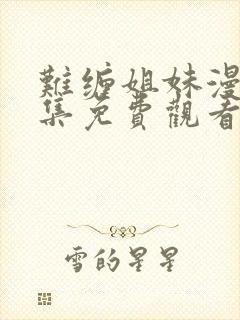 難缠姐妹漫
集免費觀看
雪的星星